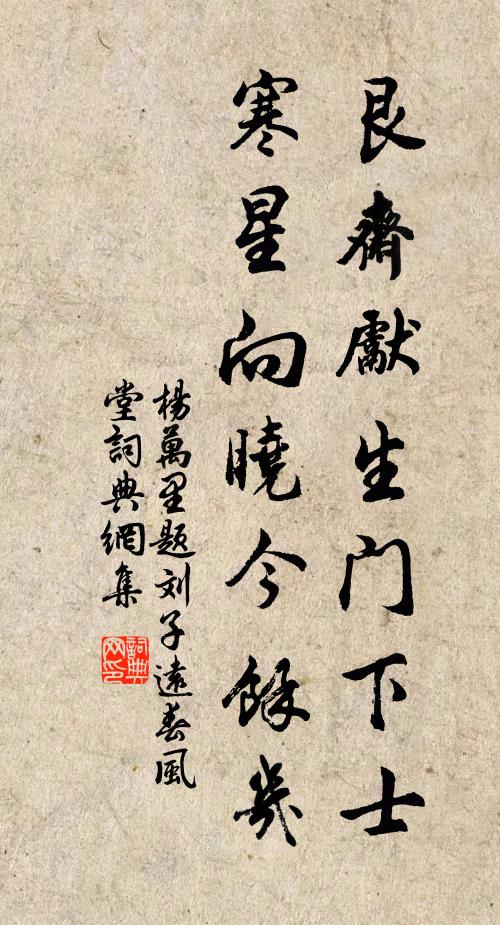 艮齋獻生门下士
寒星向曉今餘幾
楊萬里题刘子遠春風
堂詞典網集
詞典网印